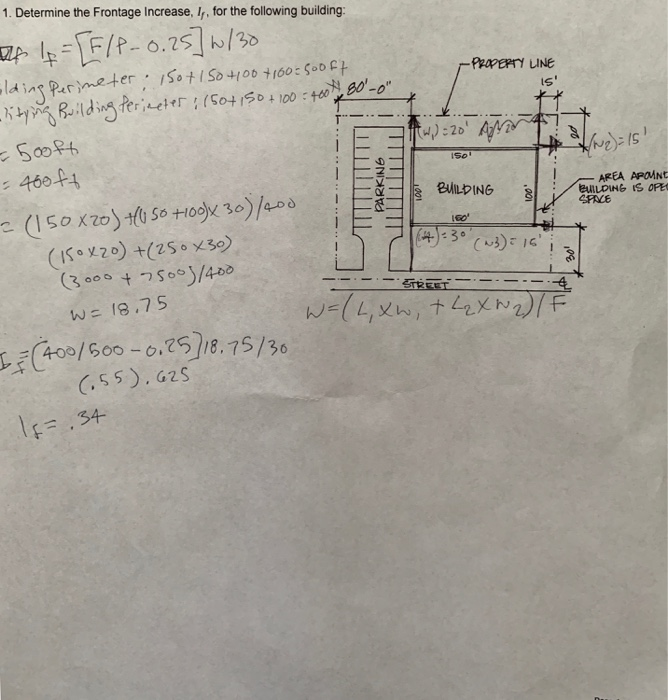 1. Determine the Frontage Increase, If, for the following building:
If = [F/P - 0.25] W/30
lding Perimeter : 150+150+100+100=500ft
Building Perimeter : (150+150+100=400ft
= 500ft
= 400ft
= (150x20)+((150+100)x30)/400
(150x20)+(250x30)
(3000+7500)/400
W= 18.75
If = (400/500 - 0.25] 18.75/30
(.55).625
If = .34
PROPERTY LINE
80'-0"
15'
(W1)=20'
20'
(W2)=15'
150'
PARKING
100'
BUILDING
100'
AREA AROUND
BUILDING IS OPE
SPACE
150'
(4)=30'
(W3)=15'
30'
STREET
W=(L1xW1+L2xW2)/F